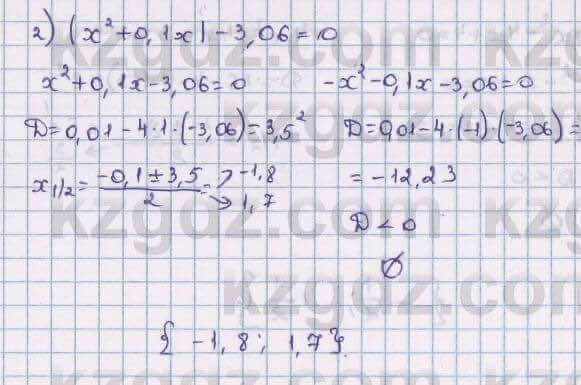 2) |x²+0,1x|-3,06=0
x²+0,1x-3,06=0 -x²-0,1x-3,06=0
D=0,01-4·1·(-3,06)=3,5² D=0,01-4·(-1)·(-3,06)=
x1/2=(-0,1±3,5)/2= -1,8 =-12,23
1,7
D<0
∅
{-1,8; 1,7}.
kzgdz.com